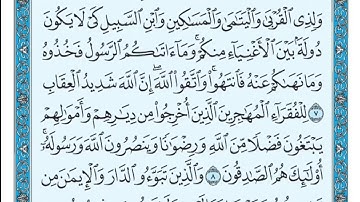 وَلِذِي الْقُرْبَىٰ وَالْيَتَامَىٰ وَالْمَسَاكِينِ وَابْنِ السَّبِيلِ كَيْ لَا يَكُونَ
دُولَةً بَيْنَ الْأَغْنِيَاءِ مِنكُمْ ۚ وَمَا آتَاكُمُ الرَّسُولُ فَخُذُوهُ
وَمَا نَهَاكُمْ عَنْهُ فَانتَهُوا ۚ وَاتَّقُوا اللَّهَ ۖ إِنَّ اللَّهَ شَدِيدُ الْعِقَابِ
٧ لِلْفُقَرَاءِ الْمُهَاجِرِينَ الَّذِينَ أُخْرِجُوا مِن دِيَارِهِمْ وَأَمْوَالِهِمْ
يَبْتَغُونَ فَضْلًا مِّنَ اللَّهِ وَرِضْوَانًا وَيَنصُرُونَ اللَّهَ وَرَسُولَهُ ۚ
أُولَٰئِكَ هُمُ الصَّادِقُونَ ٨ وَالَّذِينَ تَبَوَّءُو الدَّارَ وَالْإِيمَانَ مِن